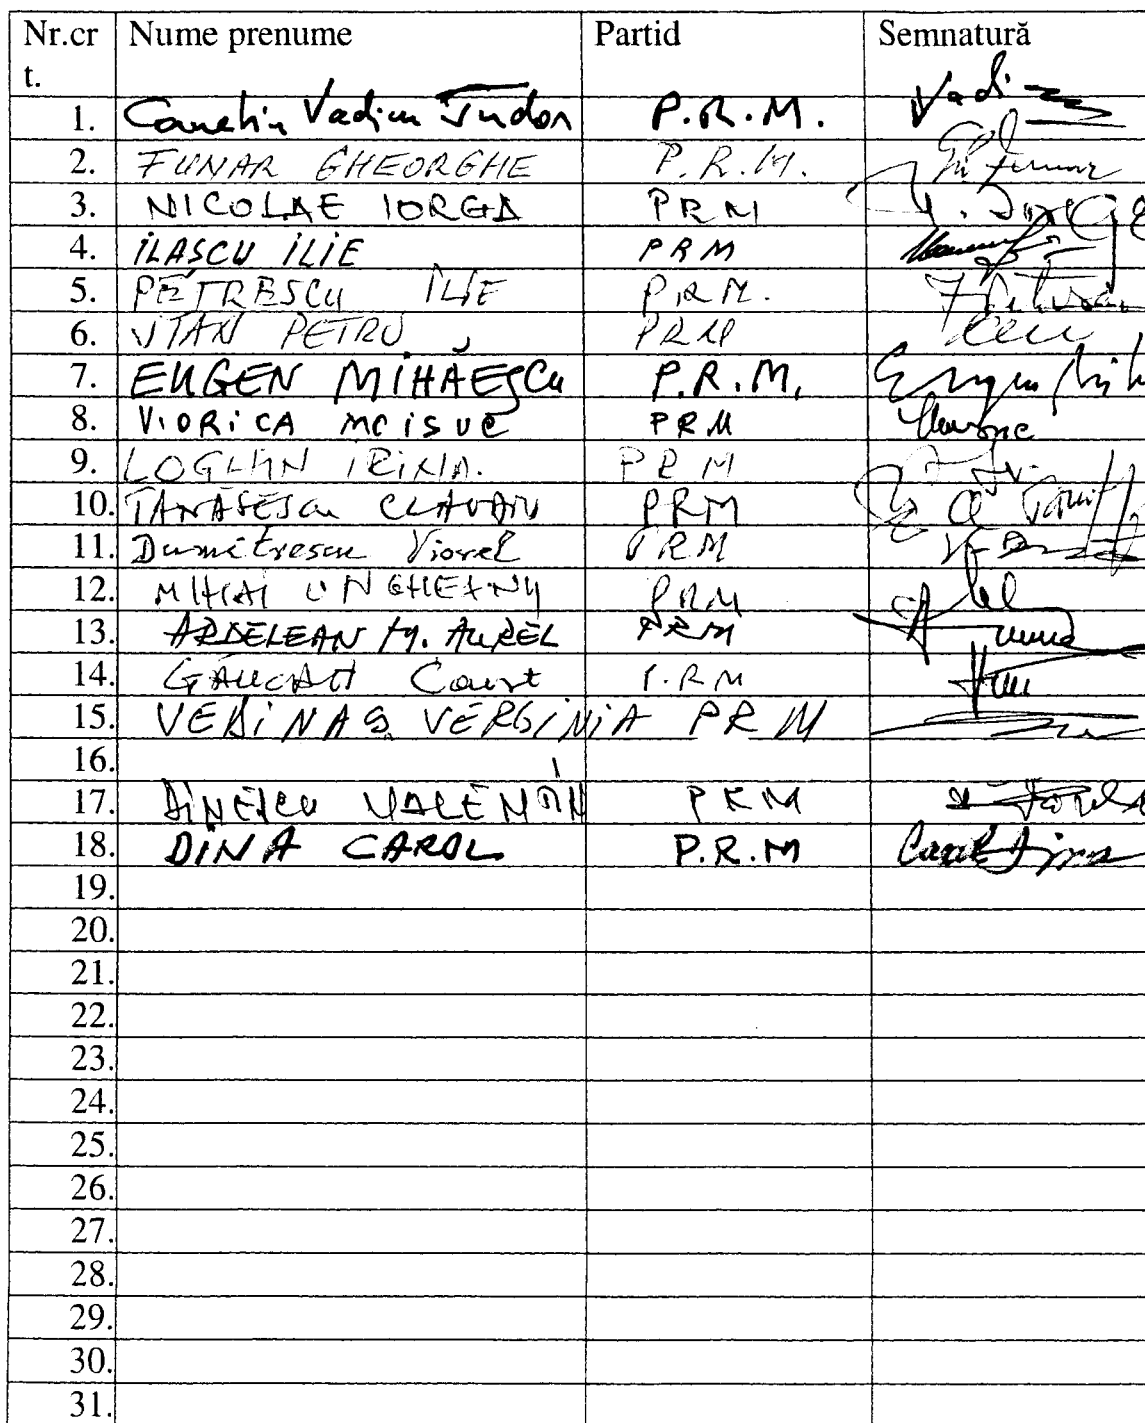 Nr.cr Nume prenume Partid Semnatură
t.
1. Corneliu Vadim Tudor P.R.M. Vadi
2. FUNAR GHEORGHE P.R.M. Gh Funar
3. NICOLAE IORGA PRM N. Iorga
4. ILASCU ILIE PRM
5. PETRESCU ILIE P.R.M.
6. STAN PETRU PRM
7. EUGEN MIHĂESCU P.R.M. Eugen Mih
8. VIORICA MOISUC PRM
9. LOGHIN IRINA. PRM
10. TĂNĂSESCU CLAUDIU PRM
11. Dumitrescu Viorel PRM
12. MIHAI UNGHEANU PRM
13. ARDELEAN M. AUREL PRM
14. GĂUCAN Const P.R.M
15. VEDINAȘ VERGINIA PRM
16.
17. DINESCU VALENTIN PRM
18. DINA CAROL P.R.M Carol Dina
19.
20.
21.
22.
23.
24.
25.
26.
27.
28.
29.
30.
31.